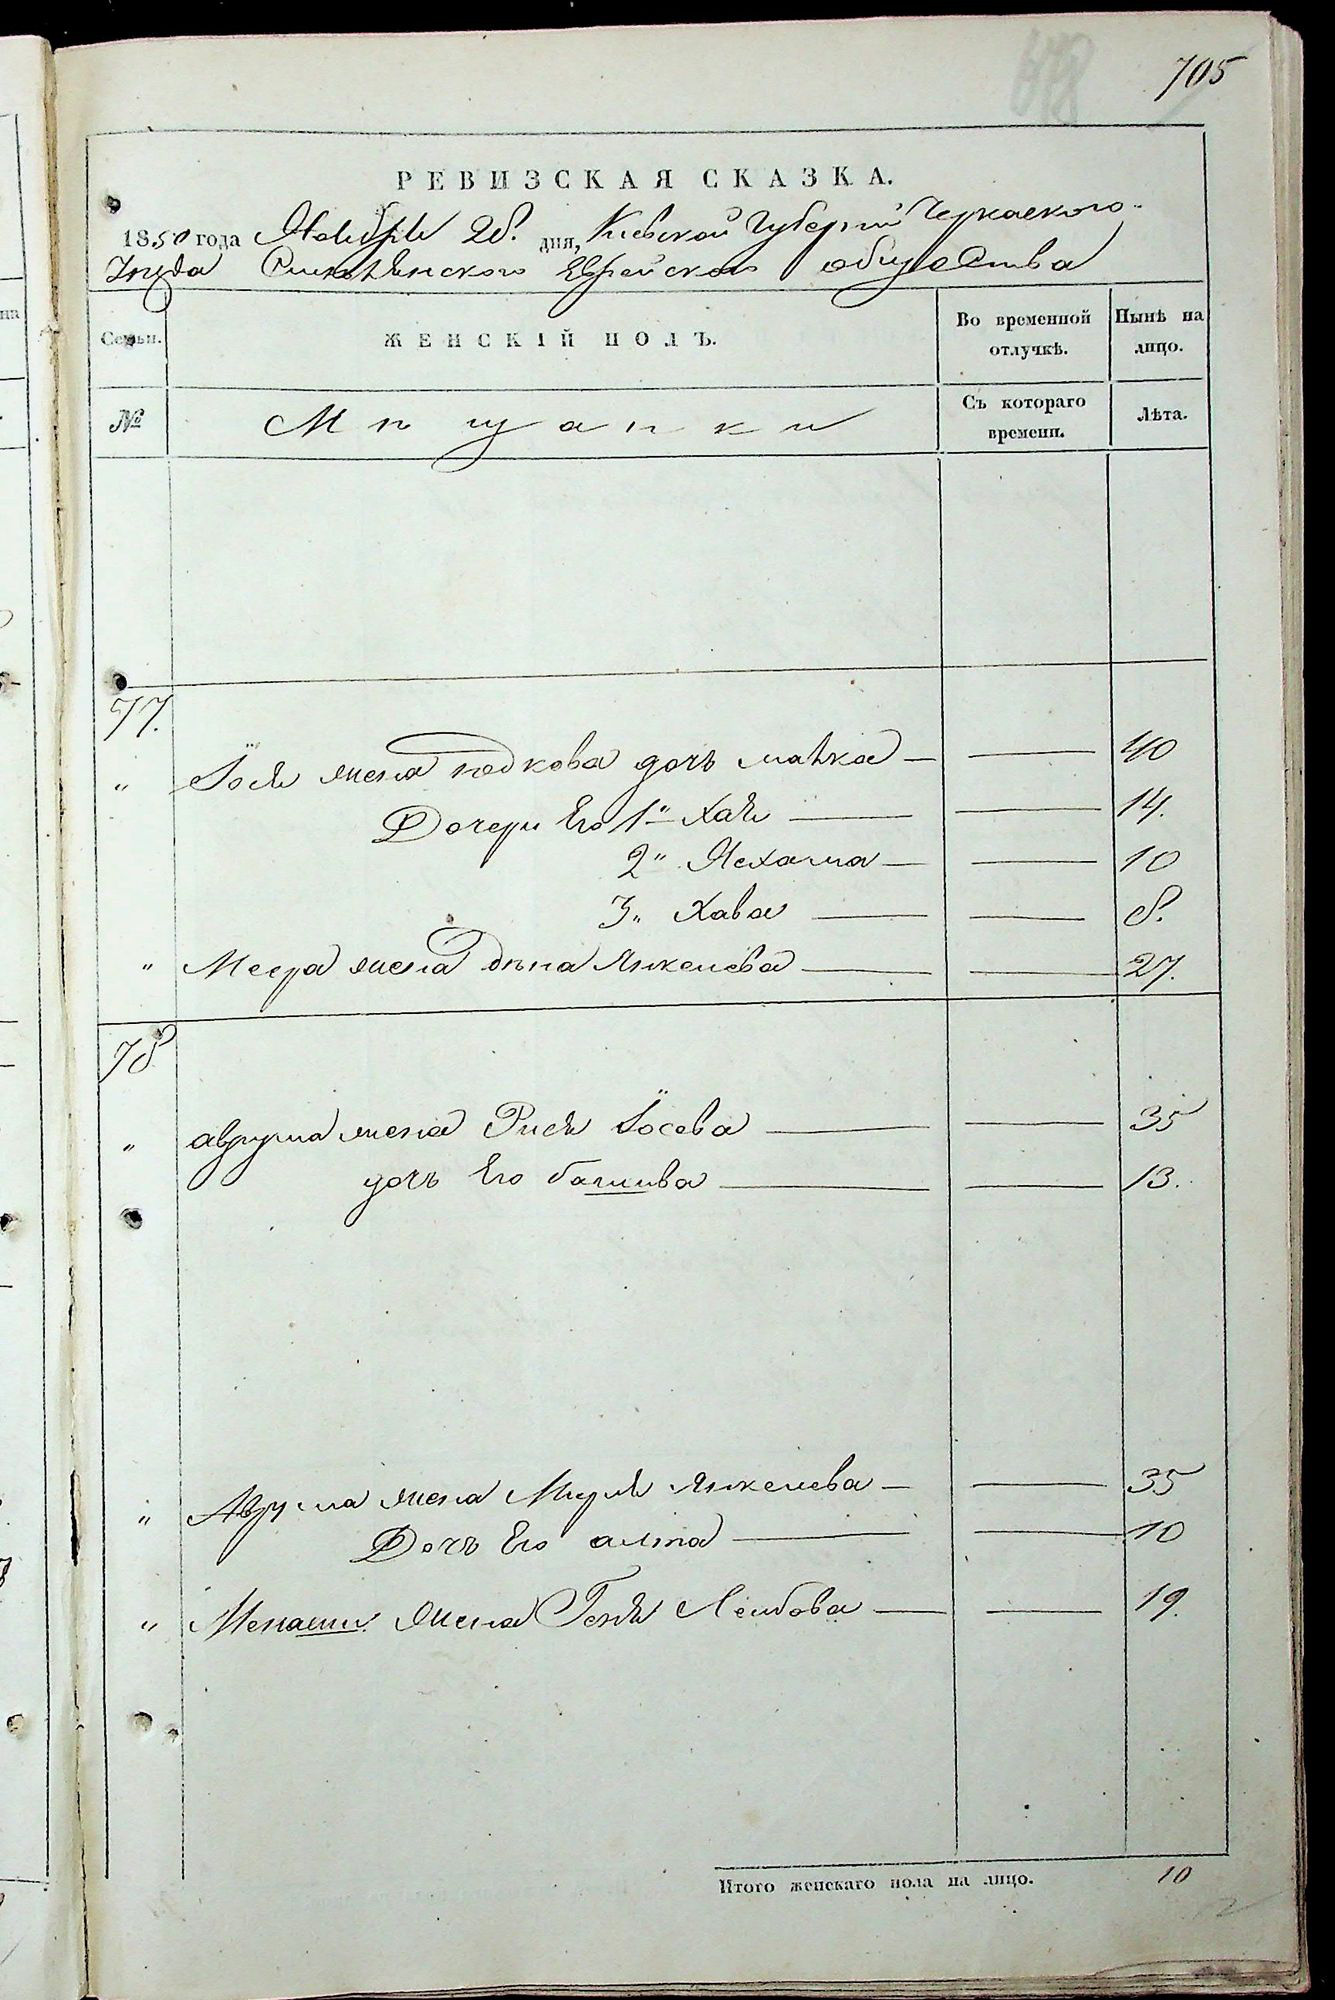 705
РЕВИЗСКАЯ СКАЗКА.
1850 года Ноября 28. дня, Киевской Губернии Черкаского
Уезда Еврейского общества
Семьи.
ЖЕНСКІЙ ПОЛЪ.
Во временной отлучкѣ.
Нынѣ на лицо.
№
Мещанки
Съ котораго времени.
Лѣта.
77.
" Іося жена дочь 40
Дочери Его 1" Хая 14.
2" Нехама 10
3" Хава 8.
" жена Янкелева 27.
78
" Аврума жена Рися Іосева 35
дочь Его батшива 13.
" Аврума жена Миря Янкелева 35
Дочь Его алта 10
" Менаши жена Геня Лейбова 19.
Итого женскаго пола на лицо. 10